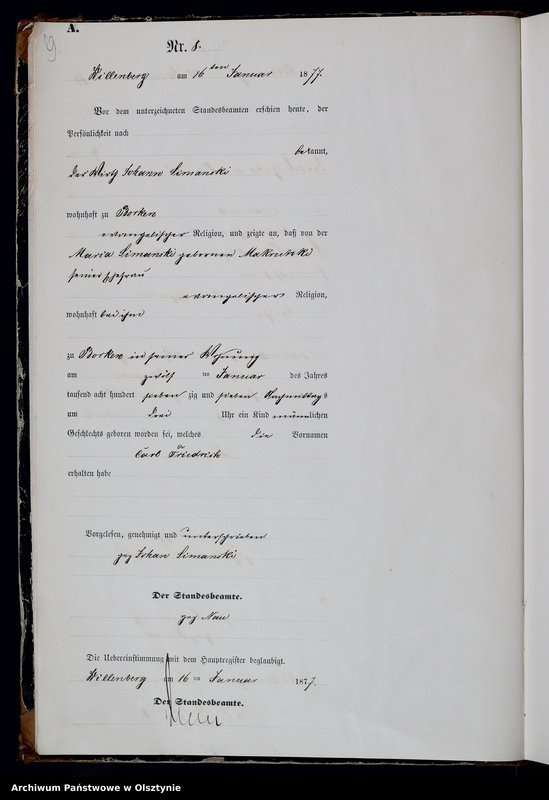 A.
9
Nr. 8.
Willenberg am 16ten Januar 1877.
Vor dem unterzeichneten Standesbeamten erschien heute, der
Persönlichkeit nach
bekannt,
der Wirth Johann Simanski
wohnhaft zu Borken
evangelischer Religion, und zeigte an, daß von der
Maria Simanski geborenen
seiner Ehefrau
evangelischer Religion,
wohnhaft bei ihm
zu Borken in seiner Wohnung
am zwölf ten Januar des Jahres
tausend acht hundert sieben zig und sieben Nachmittags
um drei Uhr ein Kind männlichen
Geschlechts geboren worden sei, welches die Vornamen
Carl Friedrich
erhalten habe
Vorgelesen, genehmigt und unterschrieben
gez Johan Simanski
Der Standesbeamte.
gez Nau
Die Uebereinstimmung mit dem Hauptregister beglaubigt.
Willenberg am 16ten Januar 1877.
Der Standesbeamte.
Nau
Archiwum Państwowe w Olsztynie